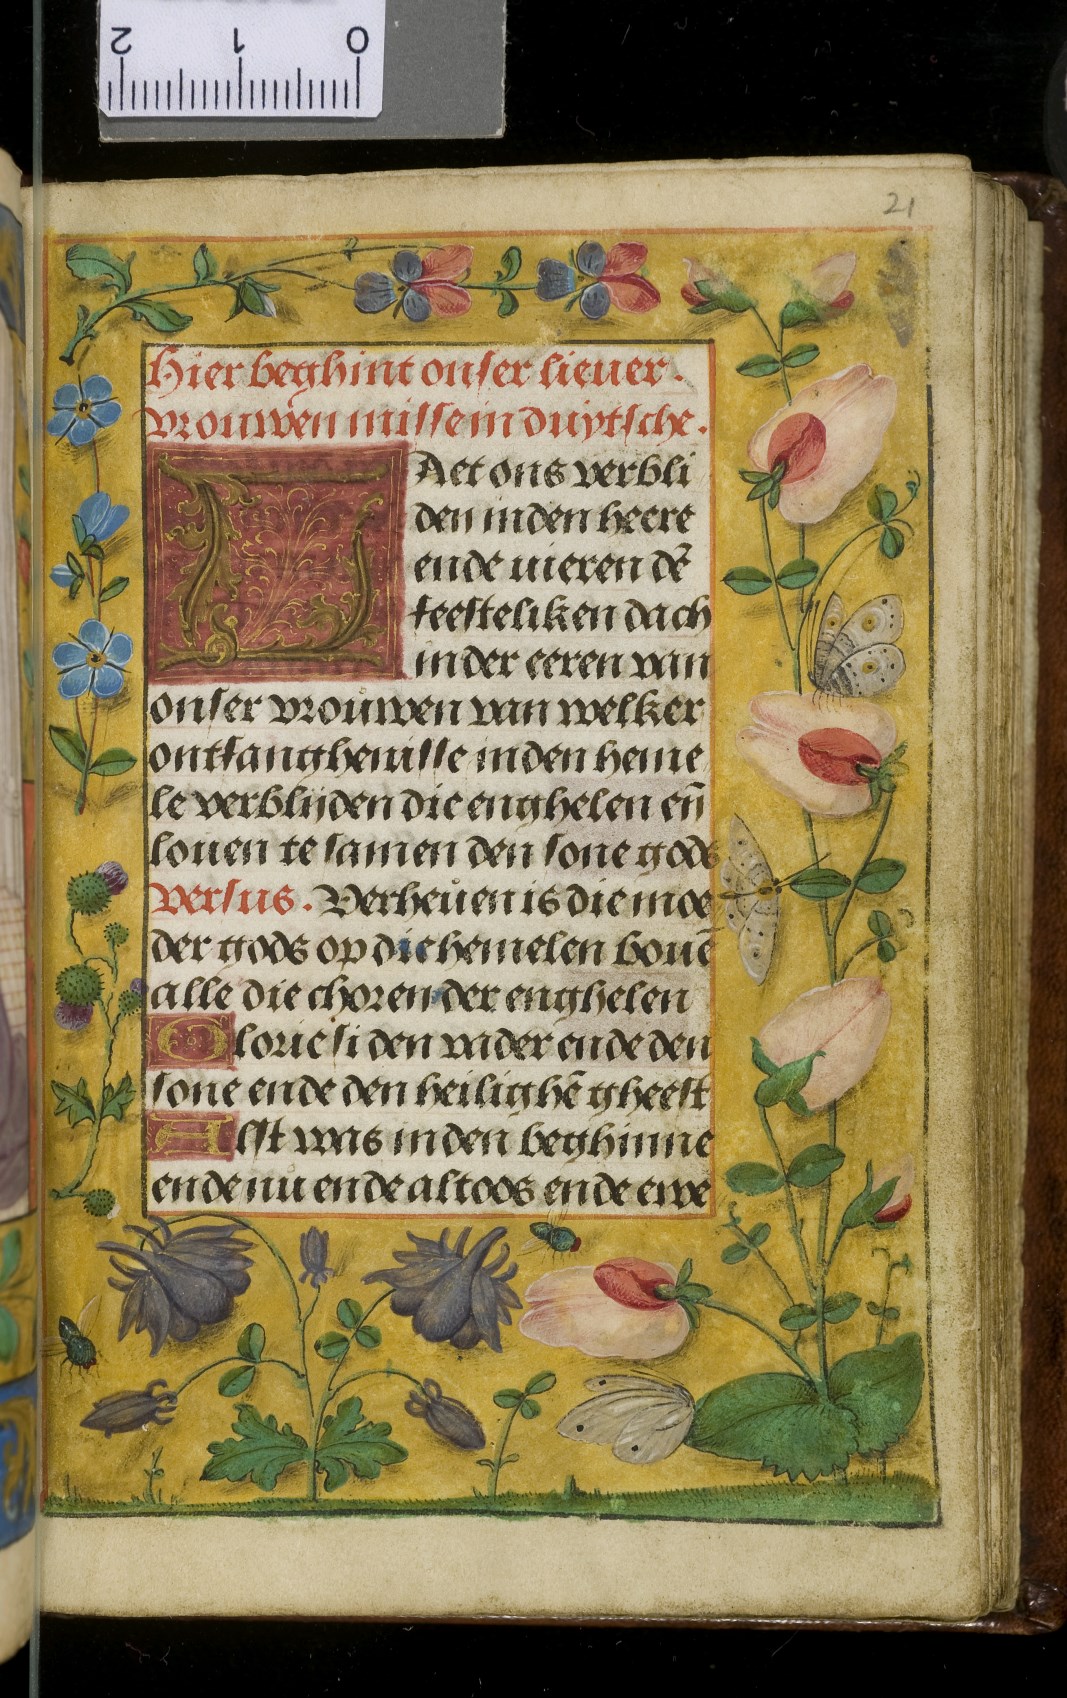 2 1 0
21
Hier beghint onser lieuer.
vrouwen misse in duytsche.
LAet ons verbli
den in den heere
ende uieren dē
feesteliken dach
in der eeren van
onser vrouwen van welker
ontfanghenisse in den heme
le verblijden die enghelen eñ
louen te samen den sone gods
Versus. Verheuen is die moe
der gods op die hemelen bouē
alle die choren der enghelen
Glorie si den vader ende den
sone ende den heilighē gheest
Alst was in den beghinne
ende nu ende altoos ende ewe